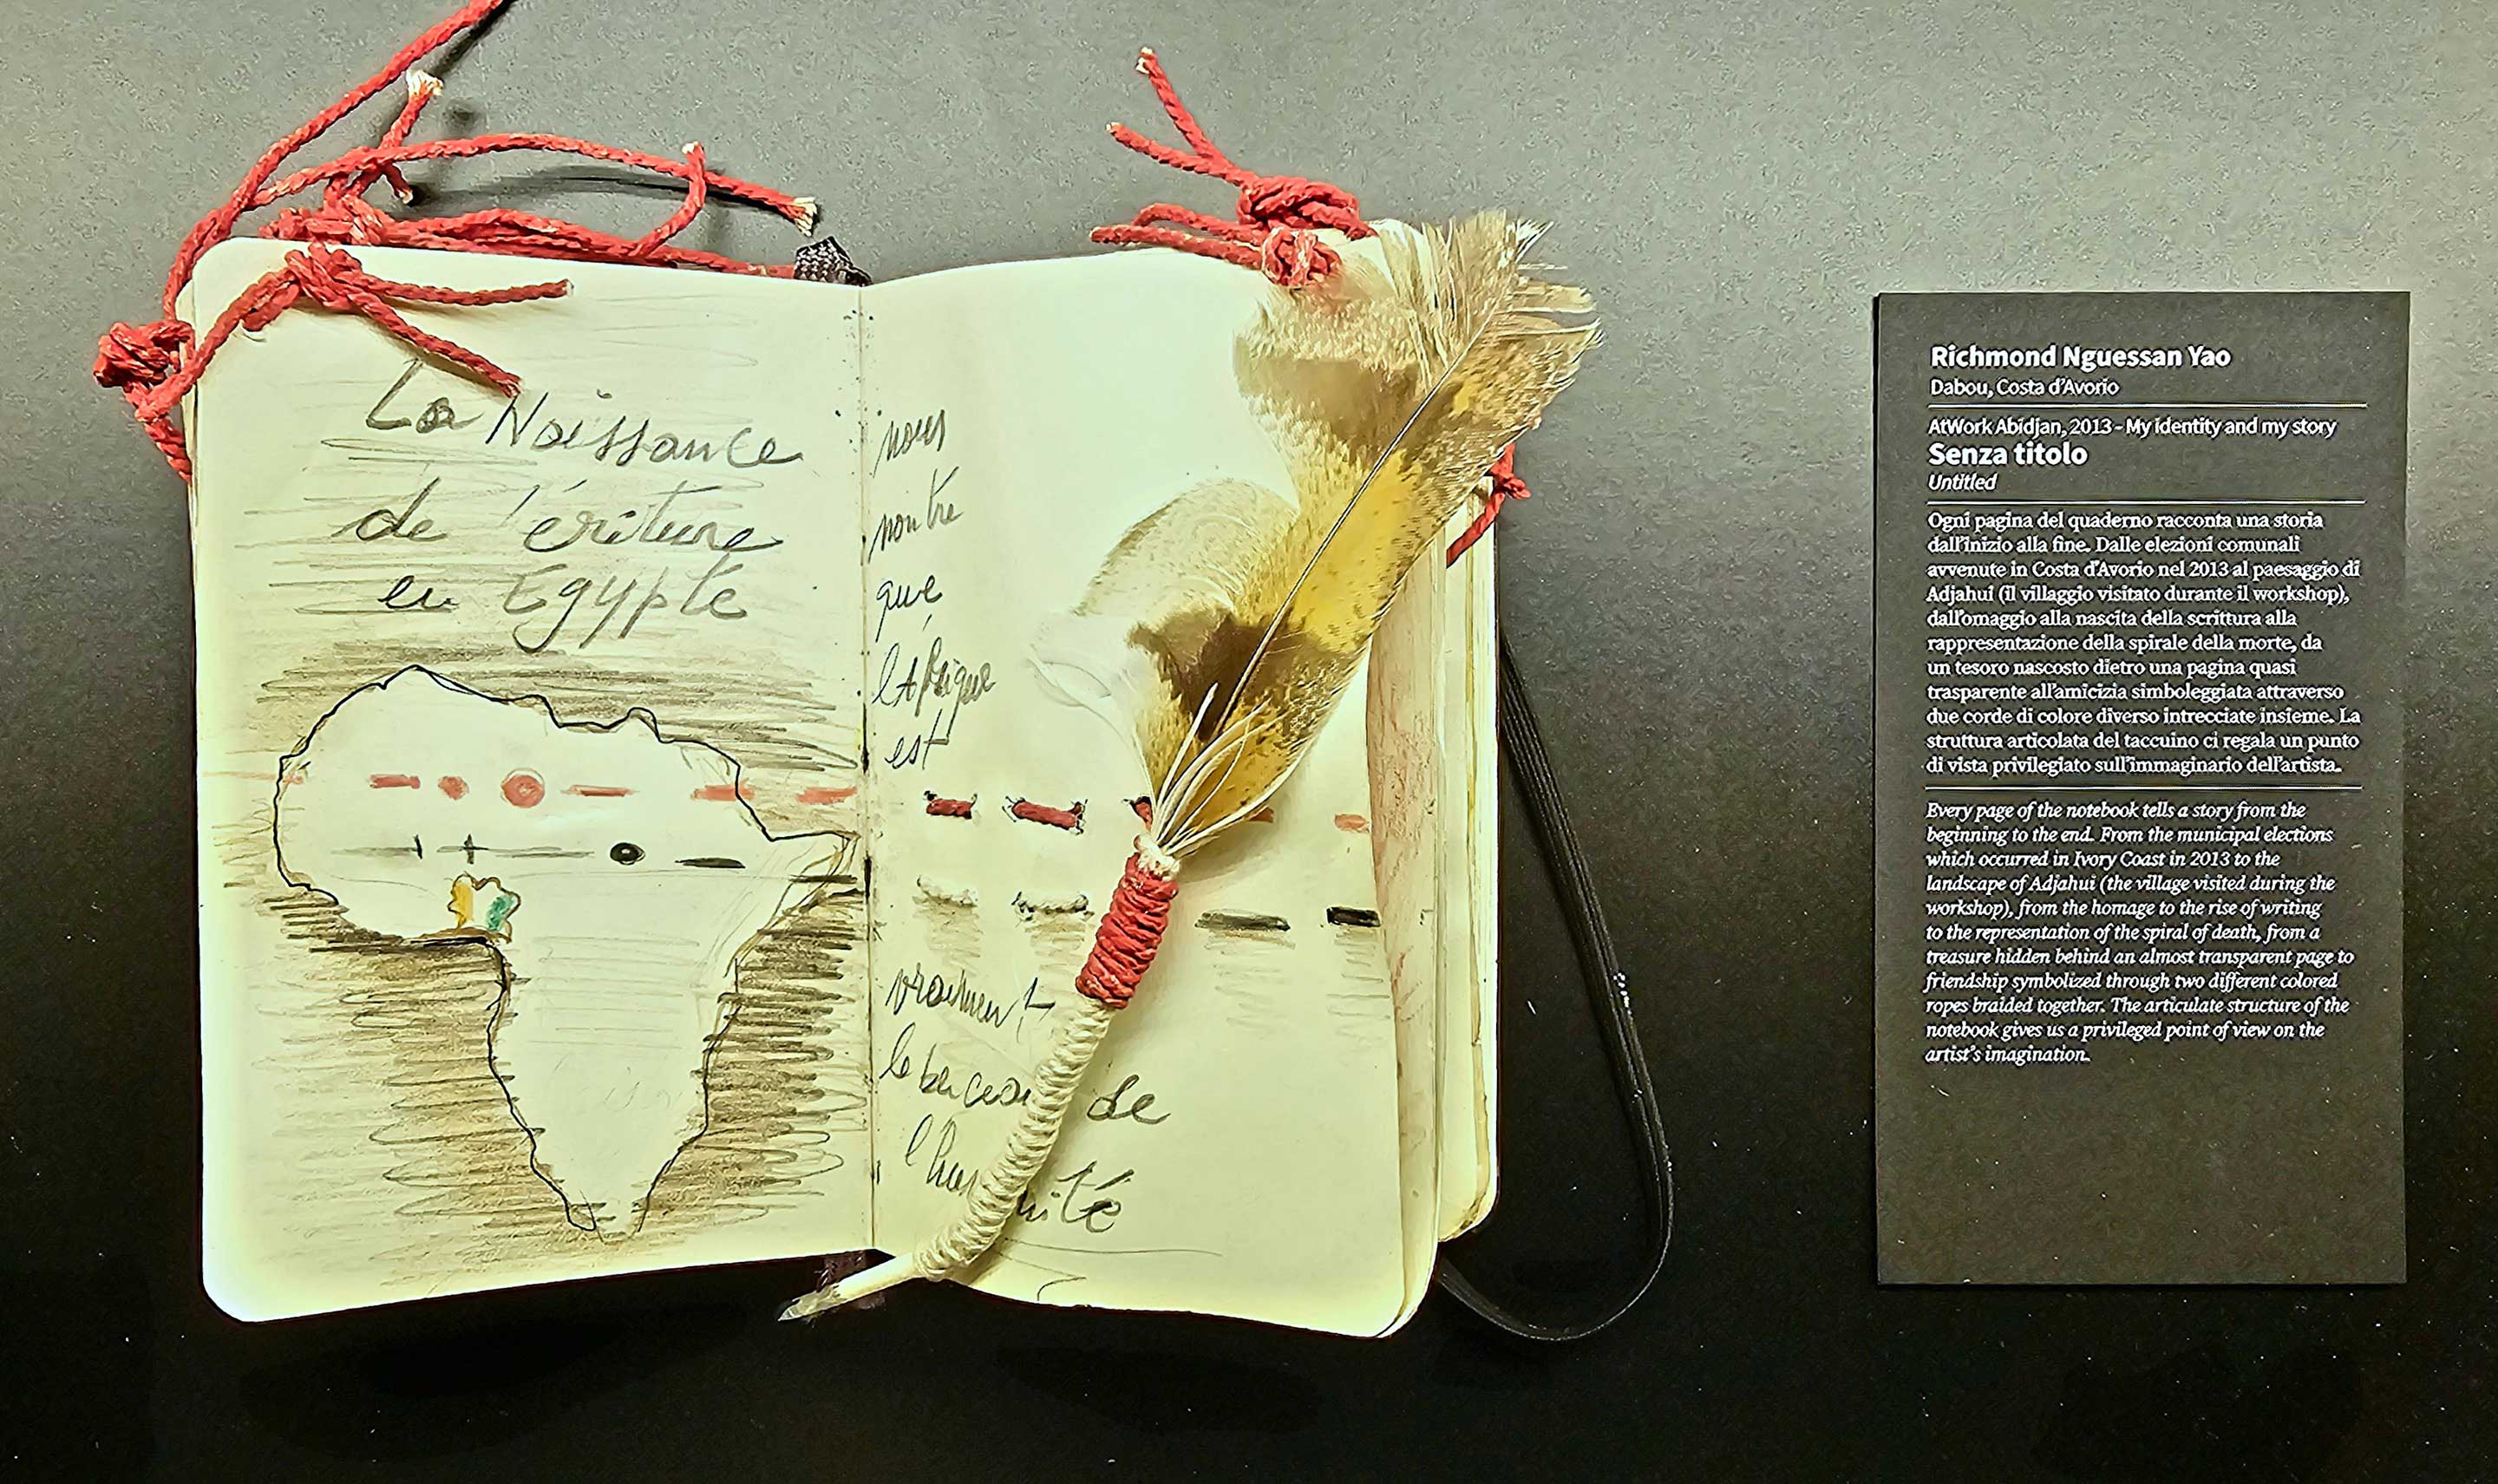 La Naissance
de l'ériture
en Egypte
nous
montre
que
l'Afrique
est
vraiment
le berceau de
Richmond Nguessan Yao
Dabou, Costa d'Avorio
AtWork Abidjan, 2013 - My identity and my story
Senza titolo
Untitled
Ogni pagina del quaderno racconta una storia
dall'inizio alla fine. Dalle elezioni comunali
avvenute in Costa d'Avorio nel 2013 al paesaggio di
Adjahui (il villaggio visitato durante il workshop),
dall'omaggio alla nascita della scrittura alla
rappresentazione della spirale della morte, da
un tesoro nascosto dietro una pagina quasi
trasparente all'amicizia simboleggiata attraverso
due corde di colore diverso intrecciate insieme. La
struttura articolata del taccuino ci regala un punto
di vista privilegiato sull'immaginario dell'artista.
Every page of the notebook tells a story from the
beginning to the end. From the municipal elections
which occurred in Ivory Coast in 2013 to the
landscape of Adjahui (the village visited during the
workshop), from the homage to the rise of writing
to the representation of the spiral of death, from a
treasure hidden behind an almost transparent page to
friendship symbolized through two different colored
ropes braided together. The articulate structure of the
notebook gives us a privileged point of view on the
artist's imagination.